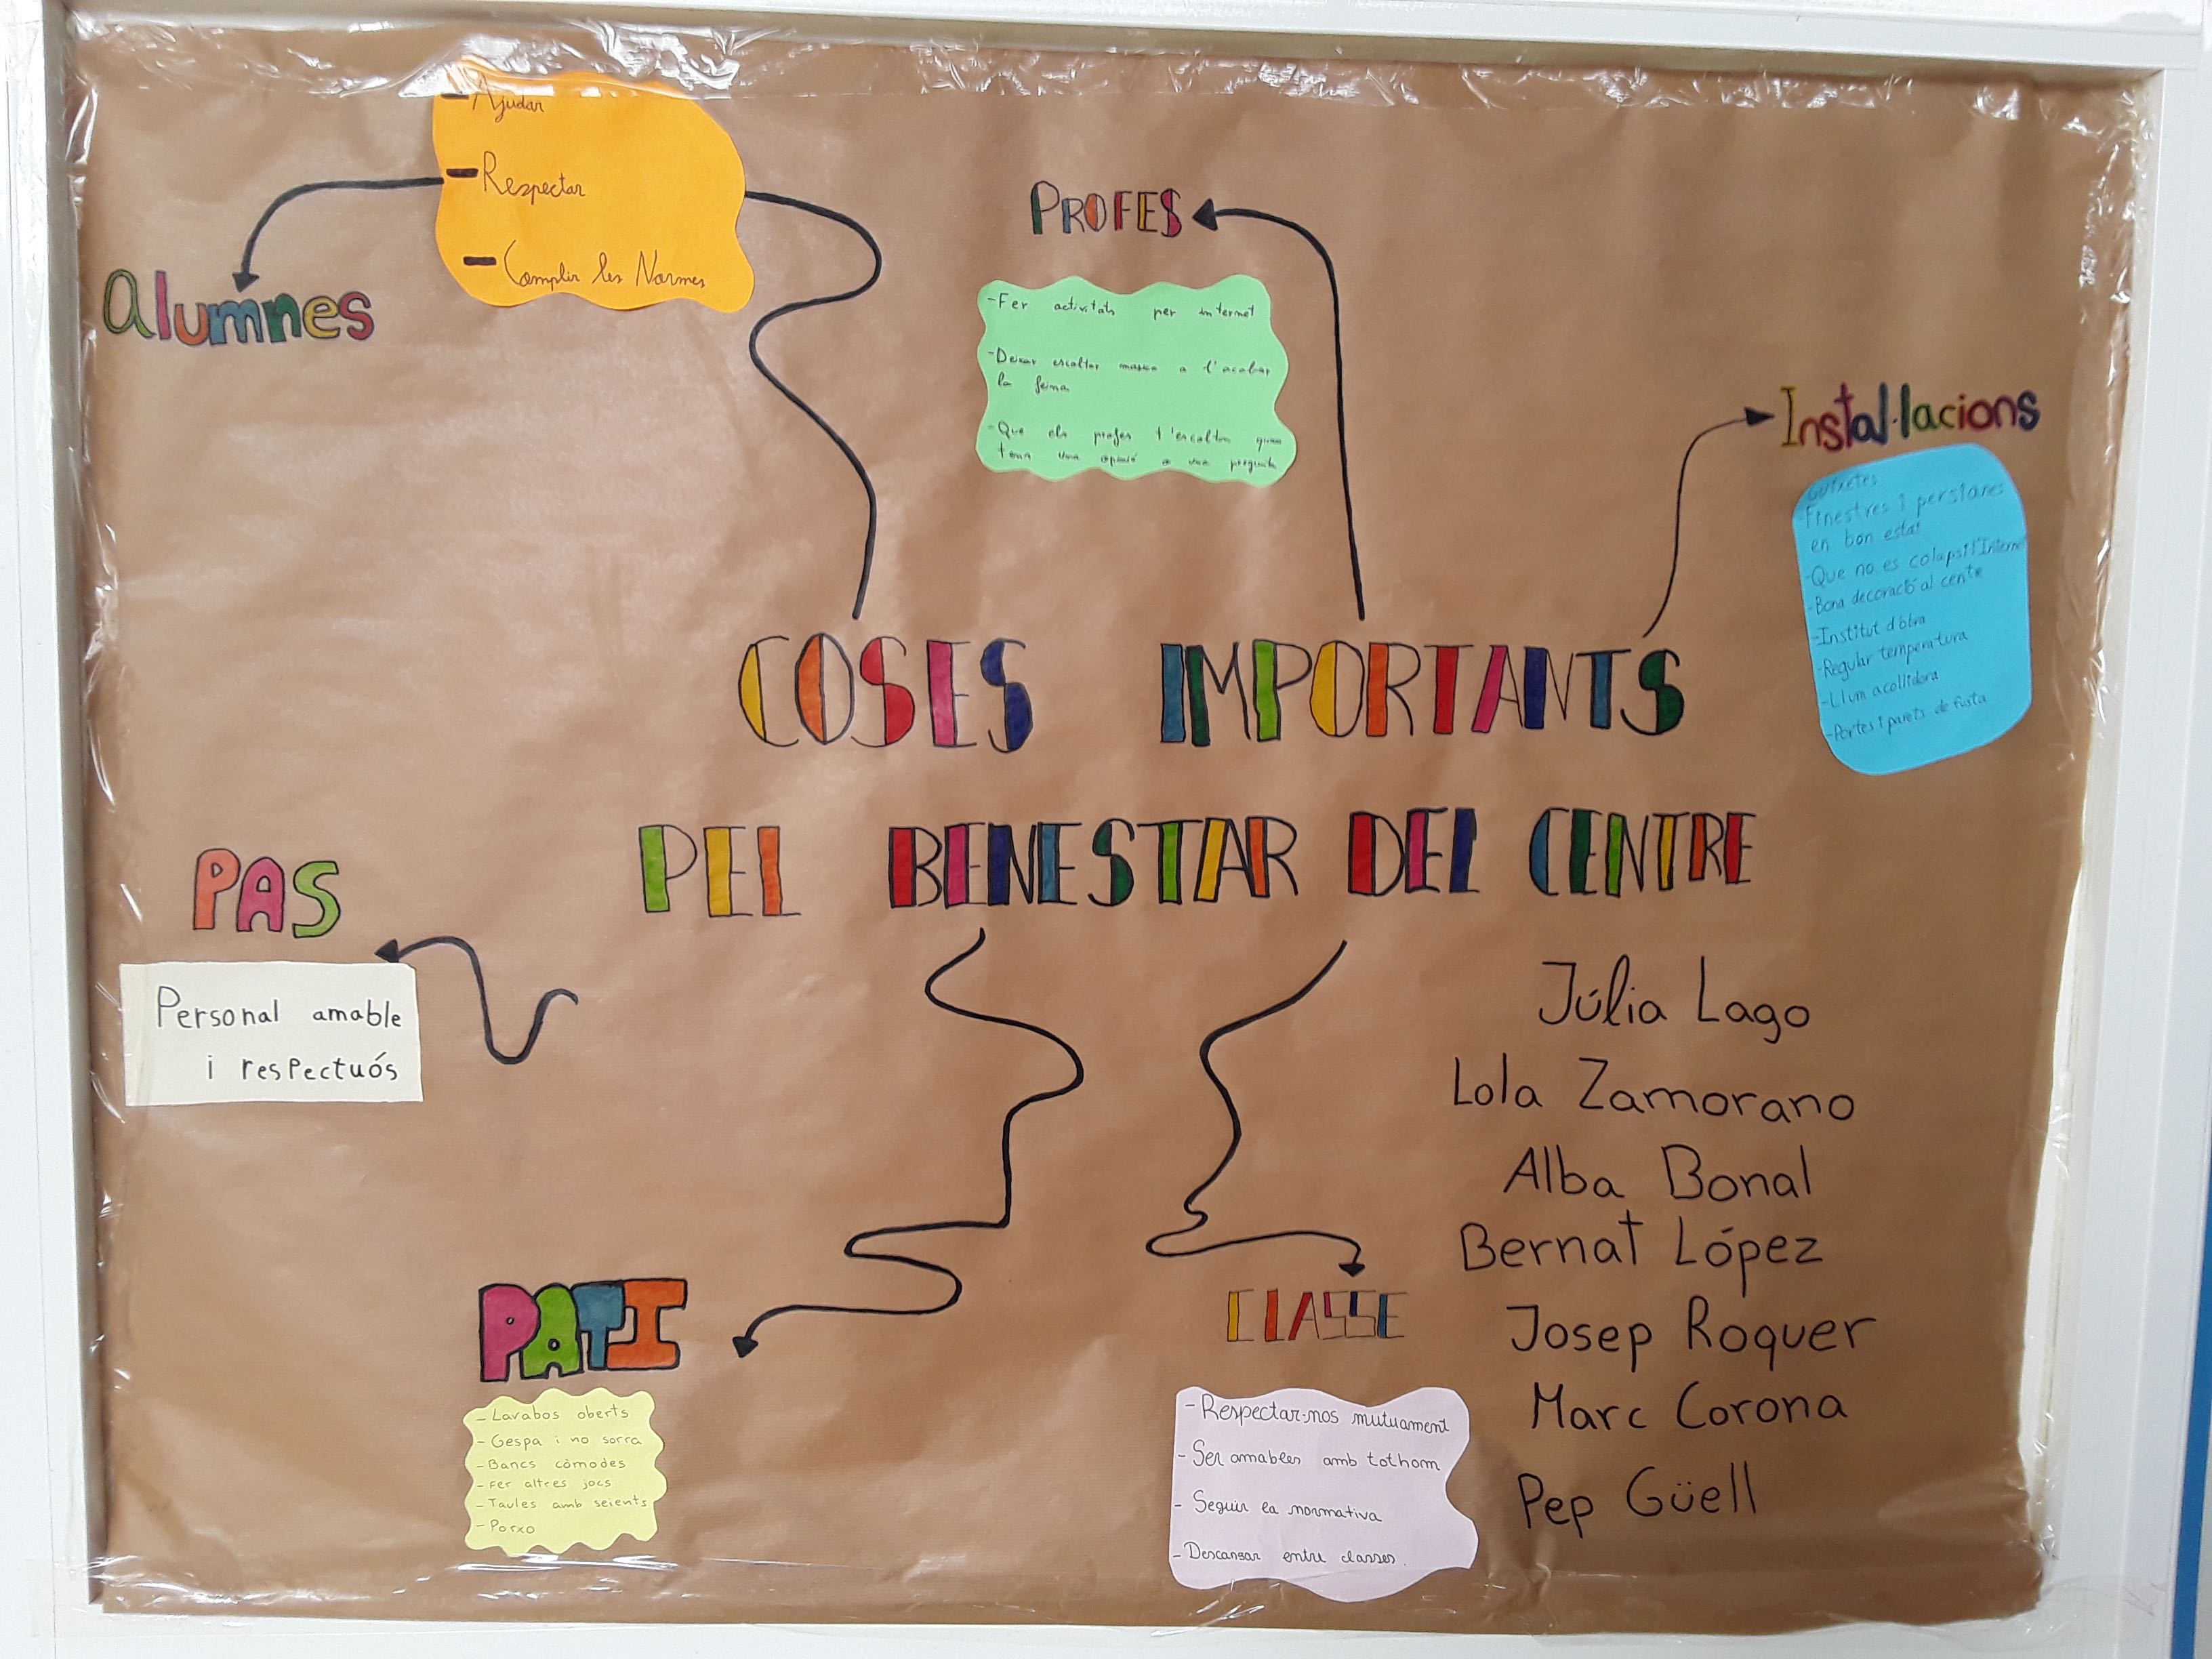 - Ajudar
- Respectar
- Complir les Normes
Alumnes
PROFES
- Fer activitats per internet
- Deixar escoltar musica a l'acabar
la feina
- Que els profes t'escoltin quan
tens una opinió o una pregunta
Instal·lacions
Guixetes
- Finestres i persianes
en bon estat
- Que no es colapsi l'Internet
- Bona decoració al centre
- Institut d'obra
- Regular temperatura
- Llum acollidora
- Portes i parets de fusta
COSES IMPORTANTS
PEL BENESTAR DEL CENTRE
PAS
Personal amable
i respectuós
PATI
- Lavabos oberts
- Gespa i no sorra
- Bancs còmodes
- Fer altres jocs
- Taules amb seients
- Porxo
CLASSE
- Respectar-nos mutuament
- Ser amables amb tothom
- Seguir la normativa
- Descansar entre classes.
Júlia Lago
Lola Zamorano
Alba Bonal
Bernat López
Josep Roquer
Marc Corona
Pep Güell